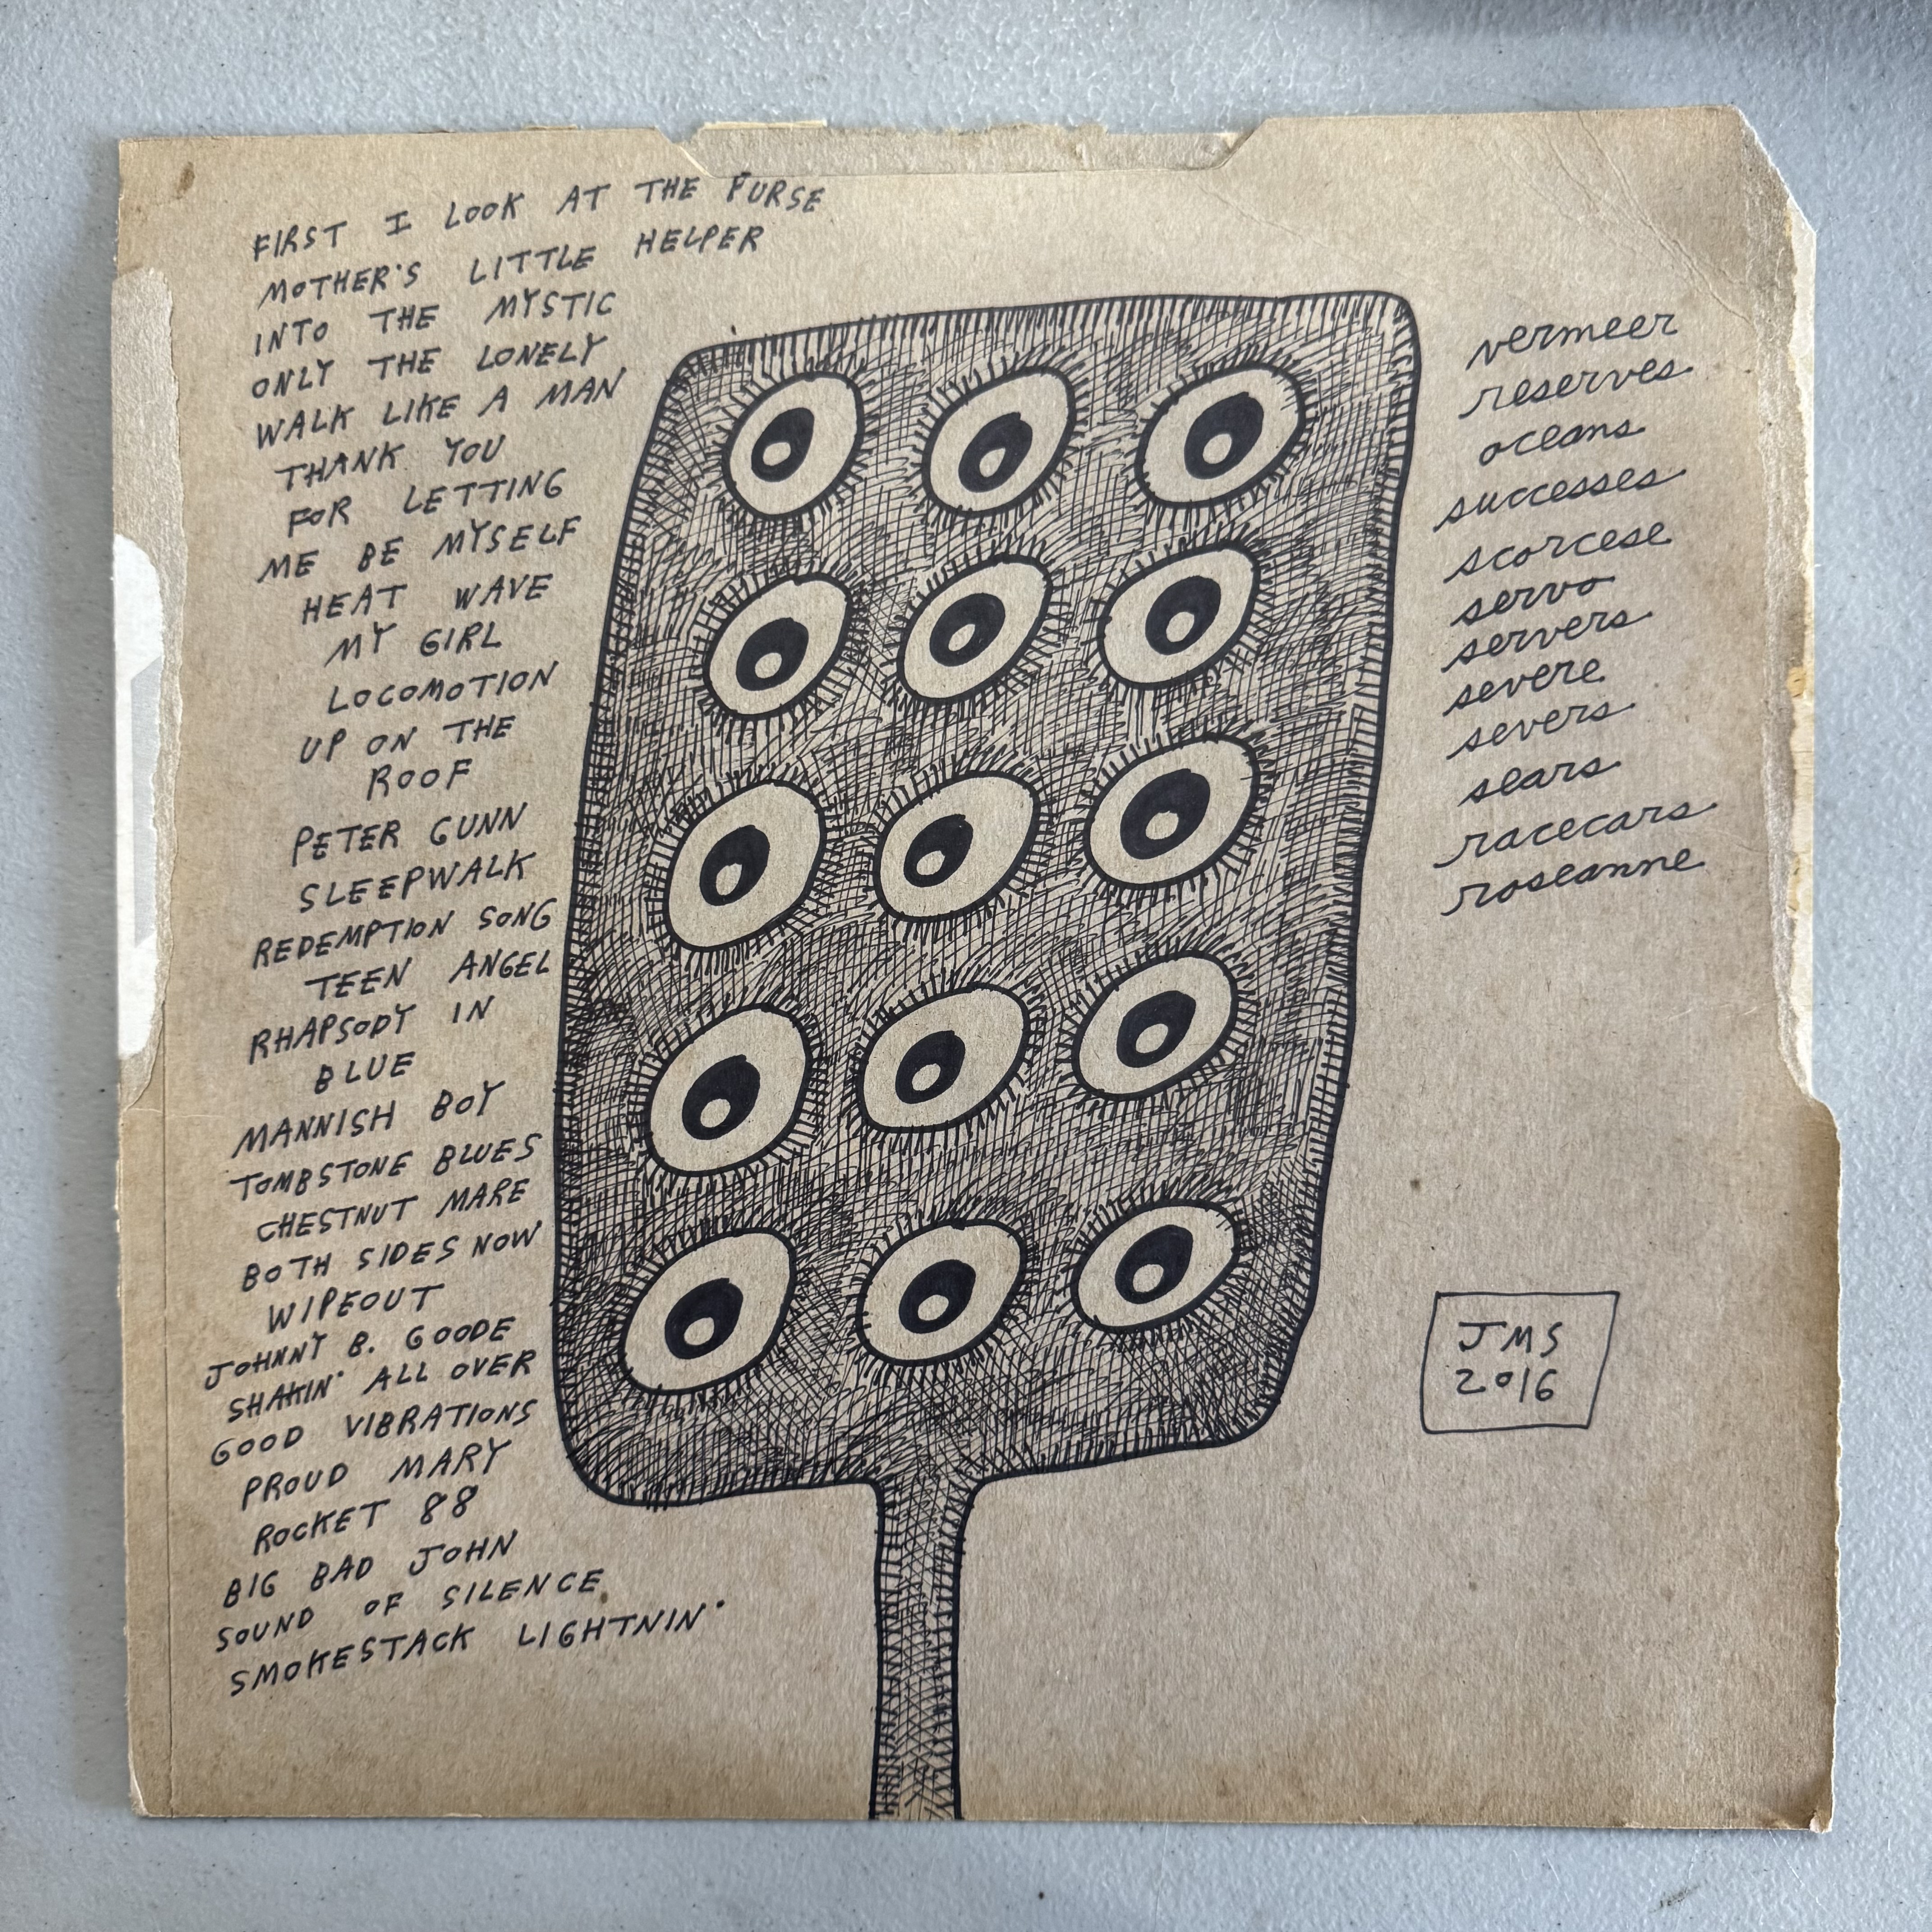 FIRST I LOOK AT THE PURSE
MOTHER'S LITTLE HELPER
INTO THE MYSTIC
ONLY THE LONELY
WALK LIKE A MAN
THANK YOU
FOR LETTING
ME BE MYSELF
HEAT WAVE
MY GIRL
LOCOMOTION
UP ON THE
ROOF
PETER GUNN
SLEEPWALK
REDEMPTION SONG
TEEN ANGEL
RHAPSODY IN
BLUE
MANNISH BOY
TOMBSTONE BLUES
CHESTNUT MARE
BOTH SIDES NOW
WIPEOUT
JOHNNY B. GOODE
SHAKIN' ALL OVER
GOOD VIBRATIONS
PROUD MARY
ROCKET 88
BIG BAD JOHN
SOUND OF SILENCE
SMOKESTACK LIGHTNIN'
vermeer
reserves
oceans
successes
scorcese
servo
servers
severe
severs
sears
racecars
roseanne
JMS
2016